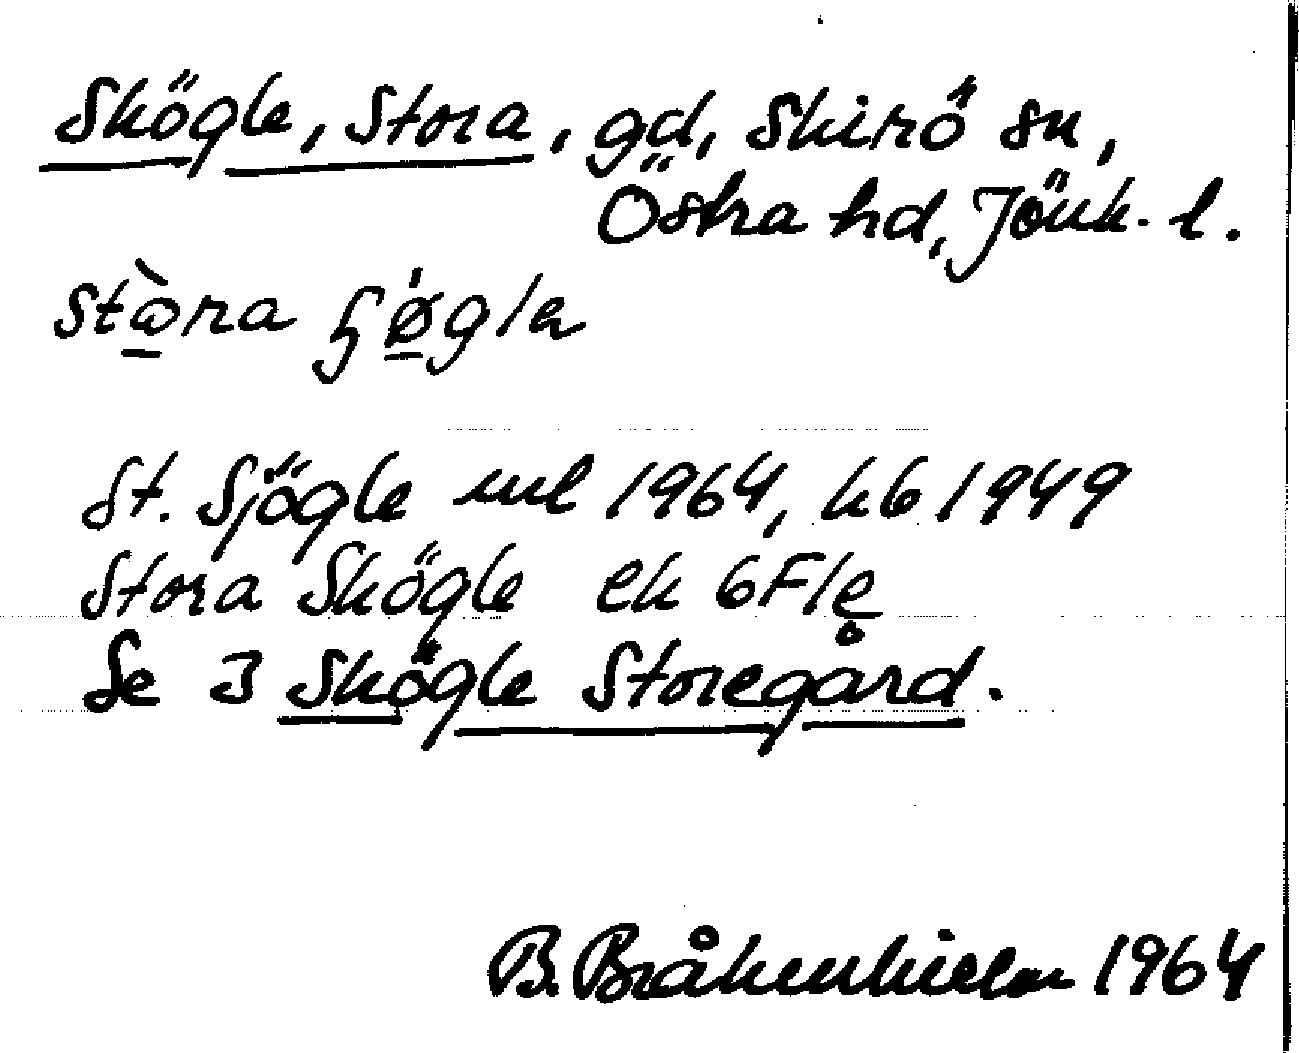 Skögle, Stora, gd, Skirö sn,
Östra hd, Jönk. l.
St. Sjögle ml 1964, kb 1949
Stora Skögle ek 6F1e
Se 3 Skögle Storegård.
B. Bråkenhielm 1964